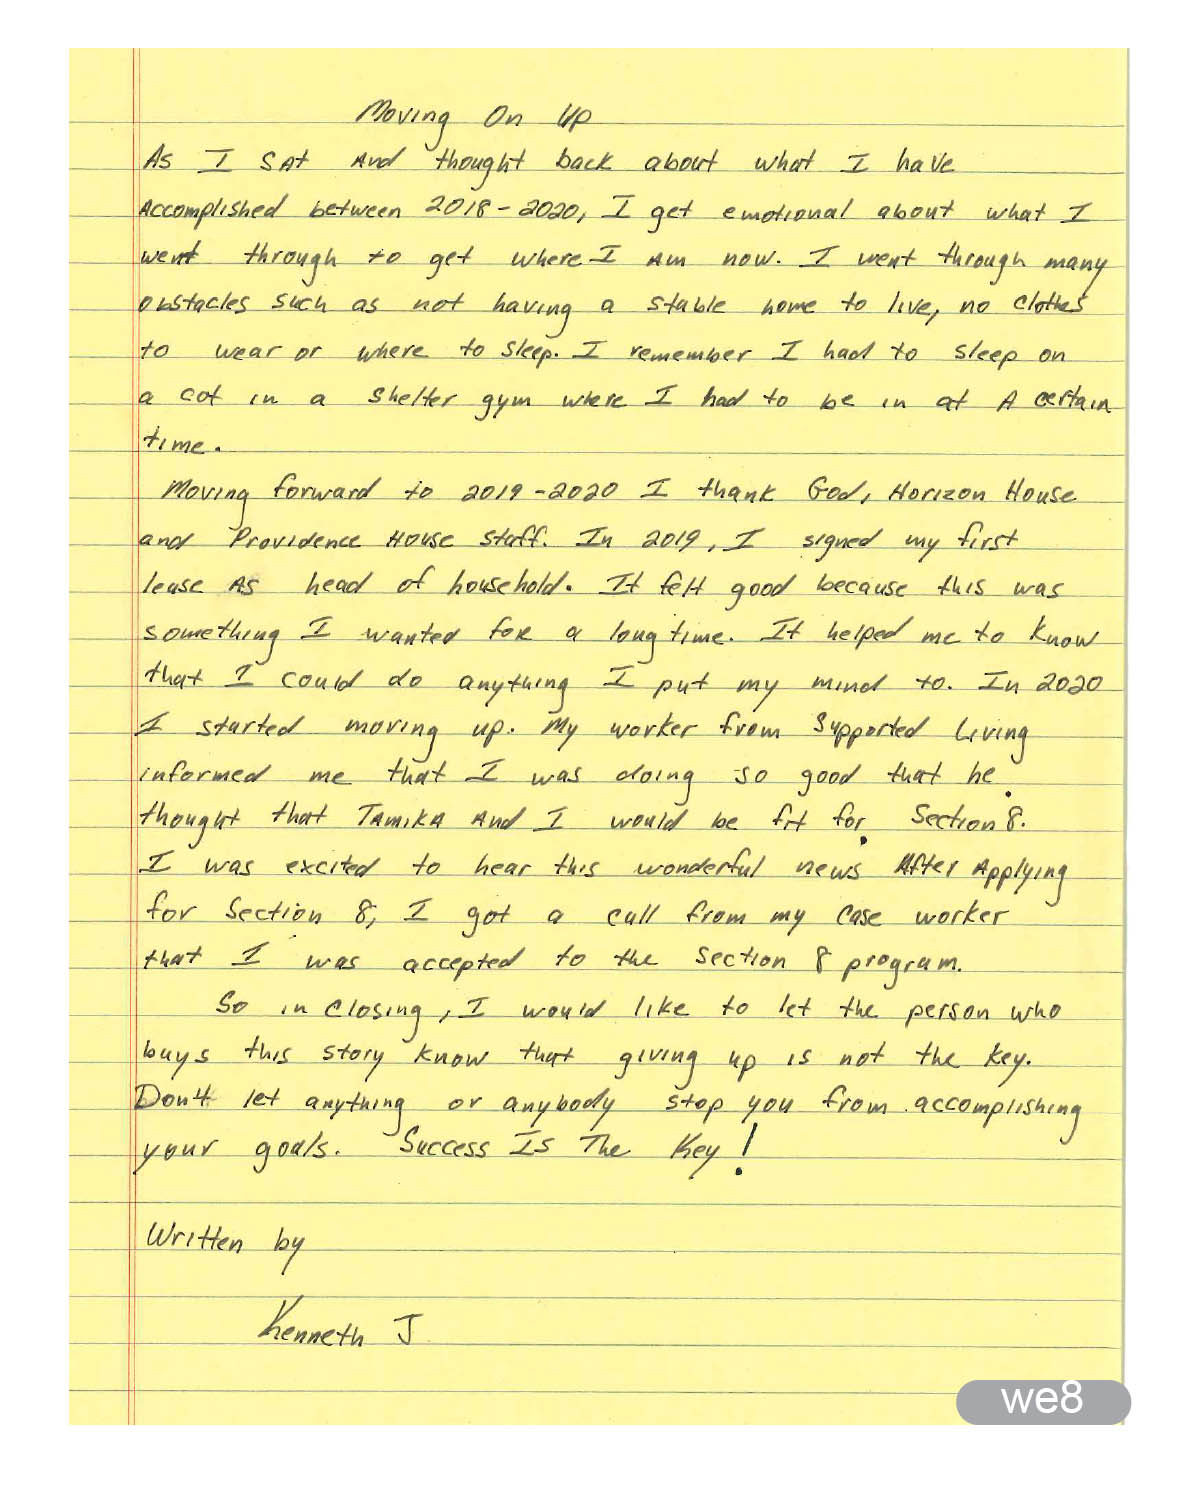 Moving On Up
As I sat And thought back about what I have
Accomplished between 2018-2020, I get emotional about what I
went through to get where I Am now. I went through many
obstacles such as not having a stable home to live, no clothes
to wear or where to sleep. I remember I had to sleep on
a cot in a shelter gym where I had to be in at A certain
time.
Moving forward to 2019-2020 I thank God, Horizon House
and Providence House staff. In 2019, I signed my first
lease As head of household. It felt good because this was
something I wanted for a long time. It helped me to know
that I could do anything I put my mind to. In 2020
I started moving up. My worker from Supported Living
informed me that I was doing so good that he
thought that Tamika And I would be fit for Section 8.
I was excited to hear this wonderful news After Applying
for Section 8, I got a call from my case worker
that I was accepted to the section 8 program.
So in closing, I would like to let the person who
buys this story know that giving up is not the key.
Don't let anything or anybody stop you from accomplishing
your goals. Success Is The Key!
Written by
Kenneth J
we8